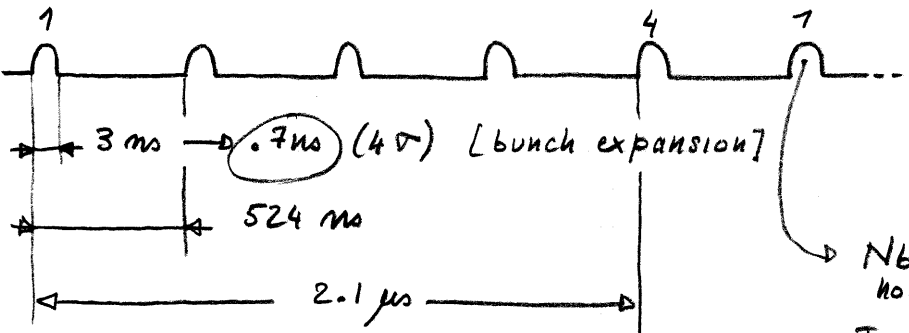 1 4 1
3 ns .7ns (4σ) [bunch expansion]
524 ns
Nb
2.1 μs no